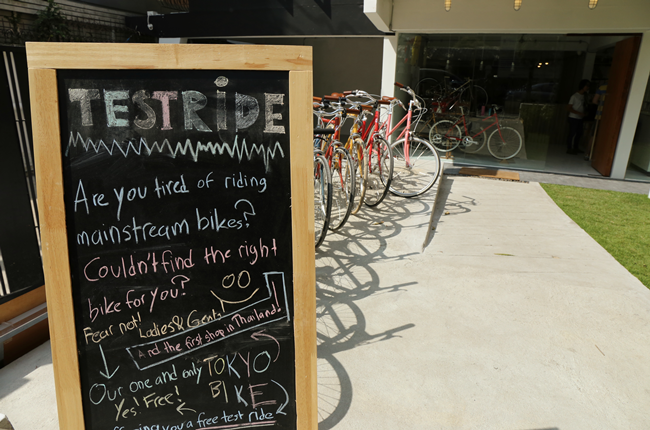 TESTRiDE
Are you tired of riding
mainstream bikes?
Couldn't find the right
bike for you?
Fear not! Ladies & Gents
And the first shop in Thailand!
Our one and only TOKYO
BIKE
Yes! Free!
you a free test ride